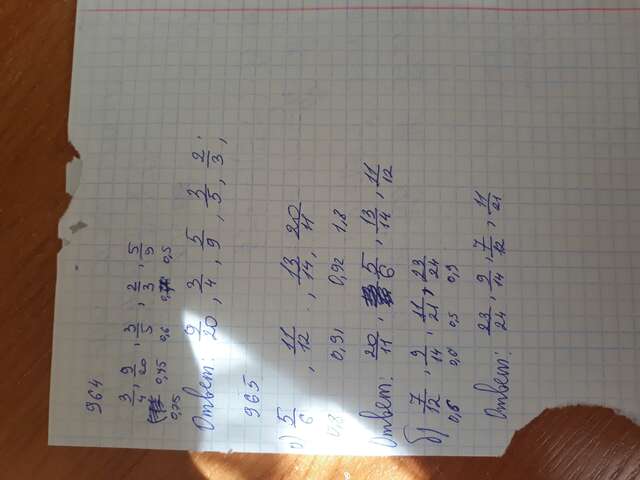 964
3/4, 9/20, 3/5, 2/3, 5/9
0,75 0,45 0,6 0,5
Ответ: 9/20, 3/4, 5/9, 3/5, 2/3,
965
а) 5/6, 11/12, 13/14, 20/11
0,8 0,91 0,92 1,8
Ответ: 20/11, 5/6, 13/14, 11/12
б) 7/12, 9/14, 11/21, 23/24
0,5 0,6 0,5 0,9
Ответ: 23/24, 9/14, 7/12, 11/21